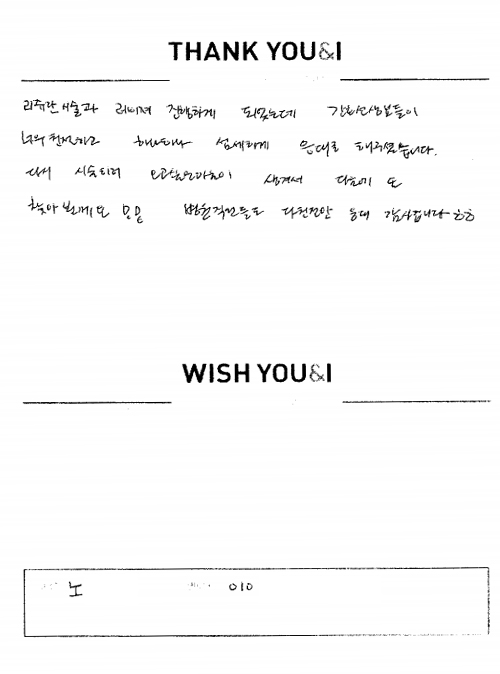 THANK YOU&I
리쥬란 시술과 레이져 진행하게 되었는데 간호선생분들이
너무 친절하고 하나하나 섬세하게 응대를 해주셨습니다.
다시 시술받으러 오고싶은마음이 생겨서 다음에 또
찾아 뵐게요 모든 병원직원들도 다친절한 응대 감사합니다 ㅎㅎ
WISH YOU&I
노 010